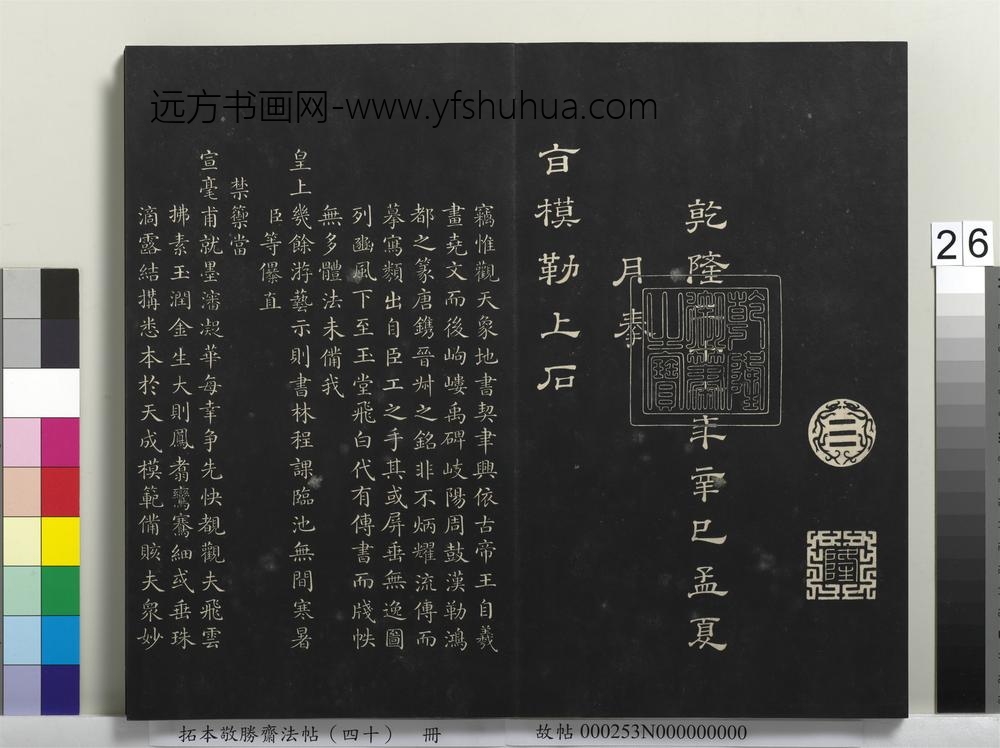 远方书画网-www.yfshuhua.com
26
乾隆
年辛巳孟夏
月奉
旨模勒上石
乾隆御筆之寶
三
隆
竊惟觀天象地書契聿興依古帝王自羲
畫堯文而後岣嶁禹碑岐陽周鼓漢勒鴻
都之篆唐鐫晉艸之銘非不炳耀流傳而
摹寫類出自臣工之手其或屏垂無逸圖
列豳風下至玉堂飛白代有傳書而牋帙
無多體法未備我
皇上幾餘游藝示則書林程課臨池無間寒暑
臣等儤直
禁籞當
宣毫甫就墨瀋凝華每幸爭先快覩觀夫飛雲
拂素玉潤金生大則鳳翥鸞騫細或垂珠
滴露結搆悉本於天成模範備賅夫衆妙
拓本敬勝齋法帖（四十） 冊
故帖 000253N000000000